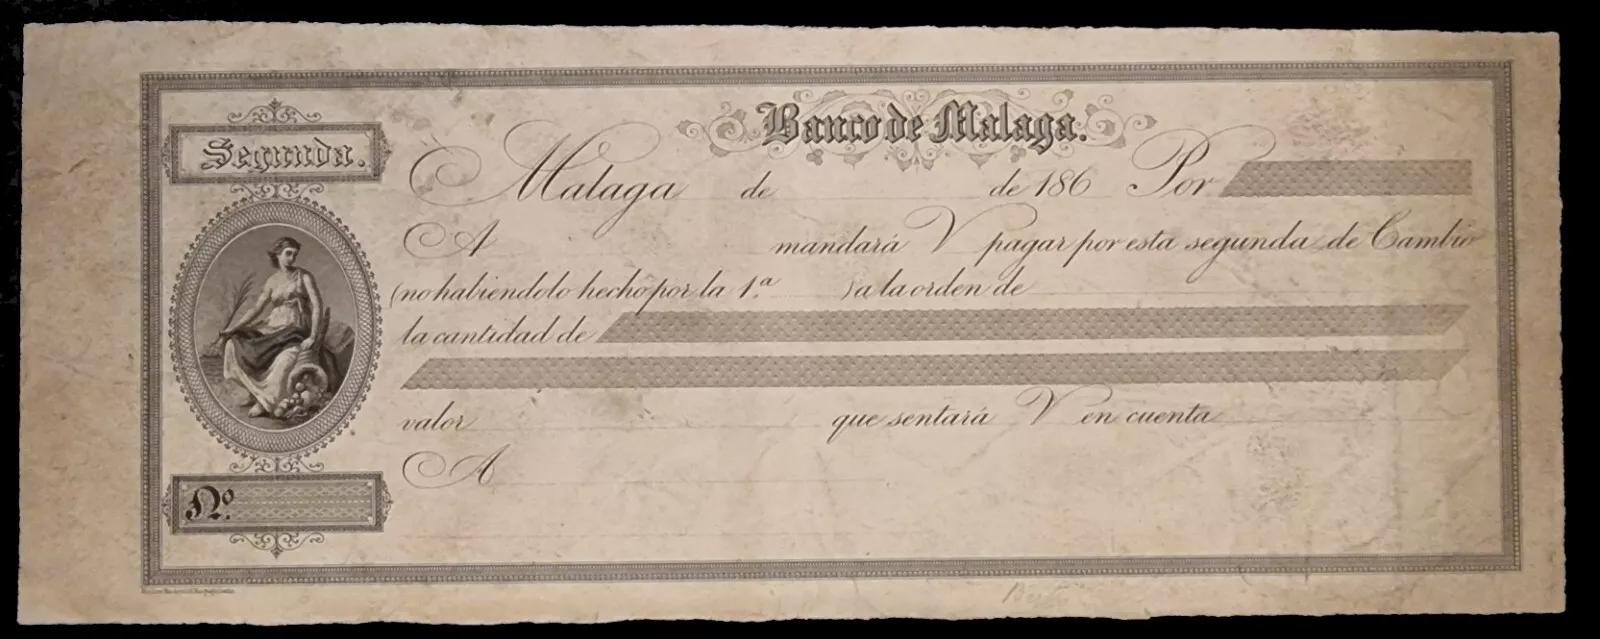 Banco de Malaga.
Segunda.
Malaga de de 186 Por
A mandará V pagar por esta segunda de Cambio
(no habiendolo hecho por la 1.ª ) a la orden de
la cantidad de
valor que sentará V en cuenta
A
Nº.